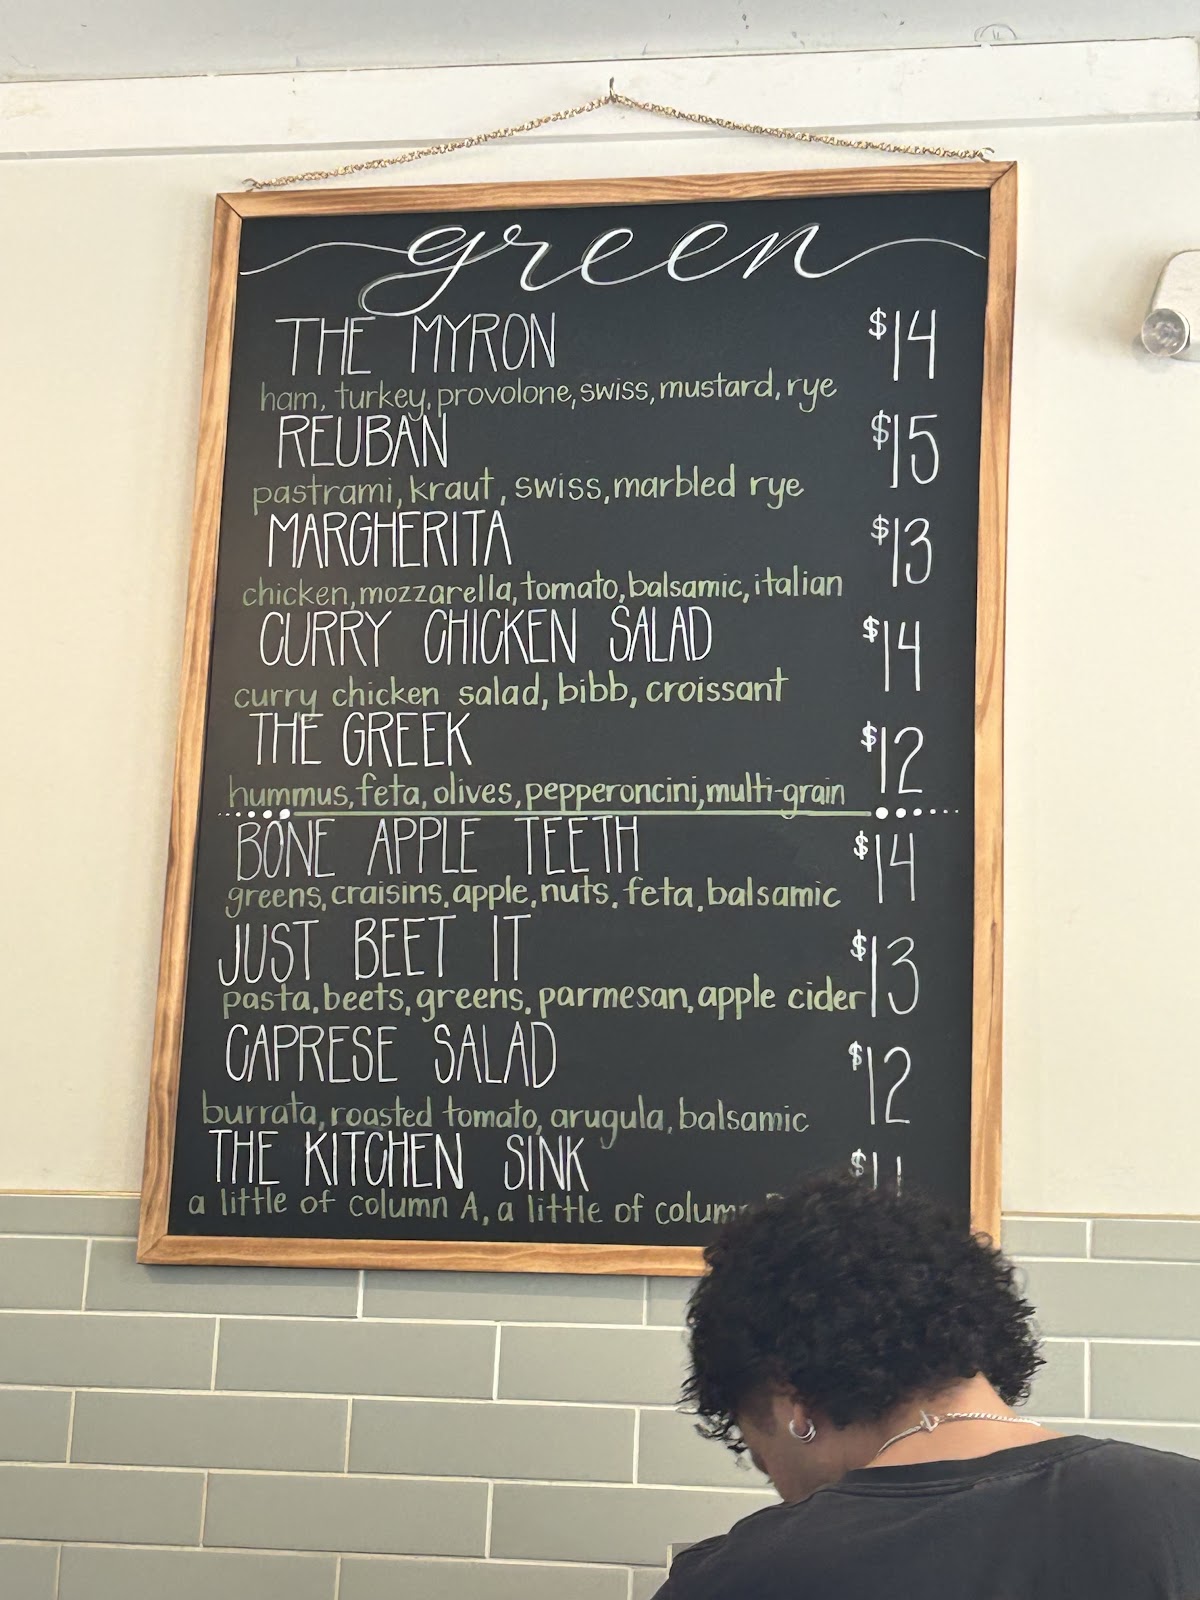 green
THE MYRON $14
ham, turkey, provolone, swiss, mustard, rye
REUBAN $15
pastrami, kraut, swiss, marbled rye
MARGHERITA $13
chicken, mozzarella, tomato, balsamic, italian
CURRY CHICKEN SALAD $14
curry chicken salad, bibb, croissant
THE GREEK $12
hummus, feta, olives, pepperoncini, multi-grain
BONE APPLE TEETH $14
greens, craisins, apple, nuts, feta, balsamic
JUST BEET IT $13
pasta, beets, greens, parmesan, apple cider
CAPRESE SALAD $12
burrata, roasted tomato, arugula, balsamic
THE KITCHEN SINK
a little of column A, a little of